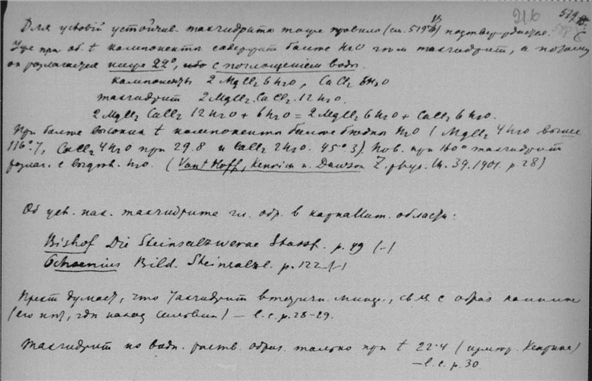 216
Для условій устойчив. тахгидрита тоже правило (см. 519
Уже при об. t компоненты содержат более H2O чем тахгидрит, а потому
он разлагается ниже 22°, ибо с поглощением воды.
компоненты 2MgCl2 6H2O, CaCl2 6H2O
тахгидрит 2MgCl2 CaCl2 12H2O.
2MgCl2 CaCl2 12H2O + 6H2O = 2MgCl2 6H2O + CaCl2 6H2O.
При более высоких t компоненты более бедны H2O (MgCl2 4H2O выше
116°,7, CaCl2 4H2O при 29.8 и CaCl2 2H2O 45°3) при 160° тахгидрит
с H2O. (Van't Hoff, Kenrick u. Dawson Z. phys. Ch. 39. 1901. p 28)
Об усл. нах. тахгидрита гл. обр. в карналлит. области:
Bishof Die Steinsalzwerke Stassf. p. 49 (-)
Ochsenius Bild. Steinsalzl. p. 122 (-)
думает, что тахгидрит вторичн. минер., связ. с образ. каинита
(его нѣт, где наход. ) — l.c. p. 28-29.
Тахгидрит из водн. раств. образ. только при t 22.4
— l.c. p. 30.